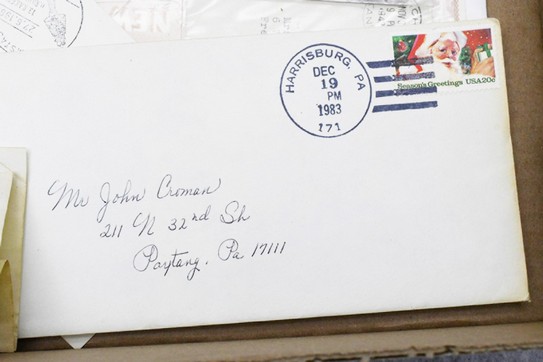 HARRISBURG, PA
DEC
19
PM
1983
171
Season's Greetings USA20c
Mr John Croman
211 N 32nd Sh
Paxtang, Pa 17111